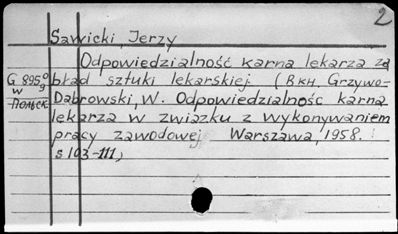 2
Sawicki, Jerzy
Odpowiedzialność karna lekarza za
G 895/9 błąd sztuki lekarskiej (Вкн. Grzywo-
w Dąbrowski, W. Odpowiedzialnośc karna
Польск. lekarza w związku z wykonywaniem
pracy zawodowej Warszawa, 1958.
s 103-111)